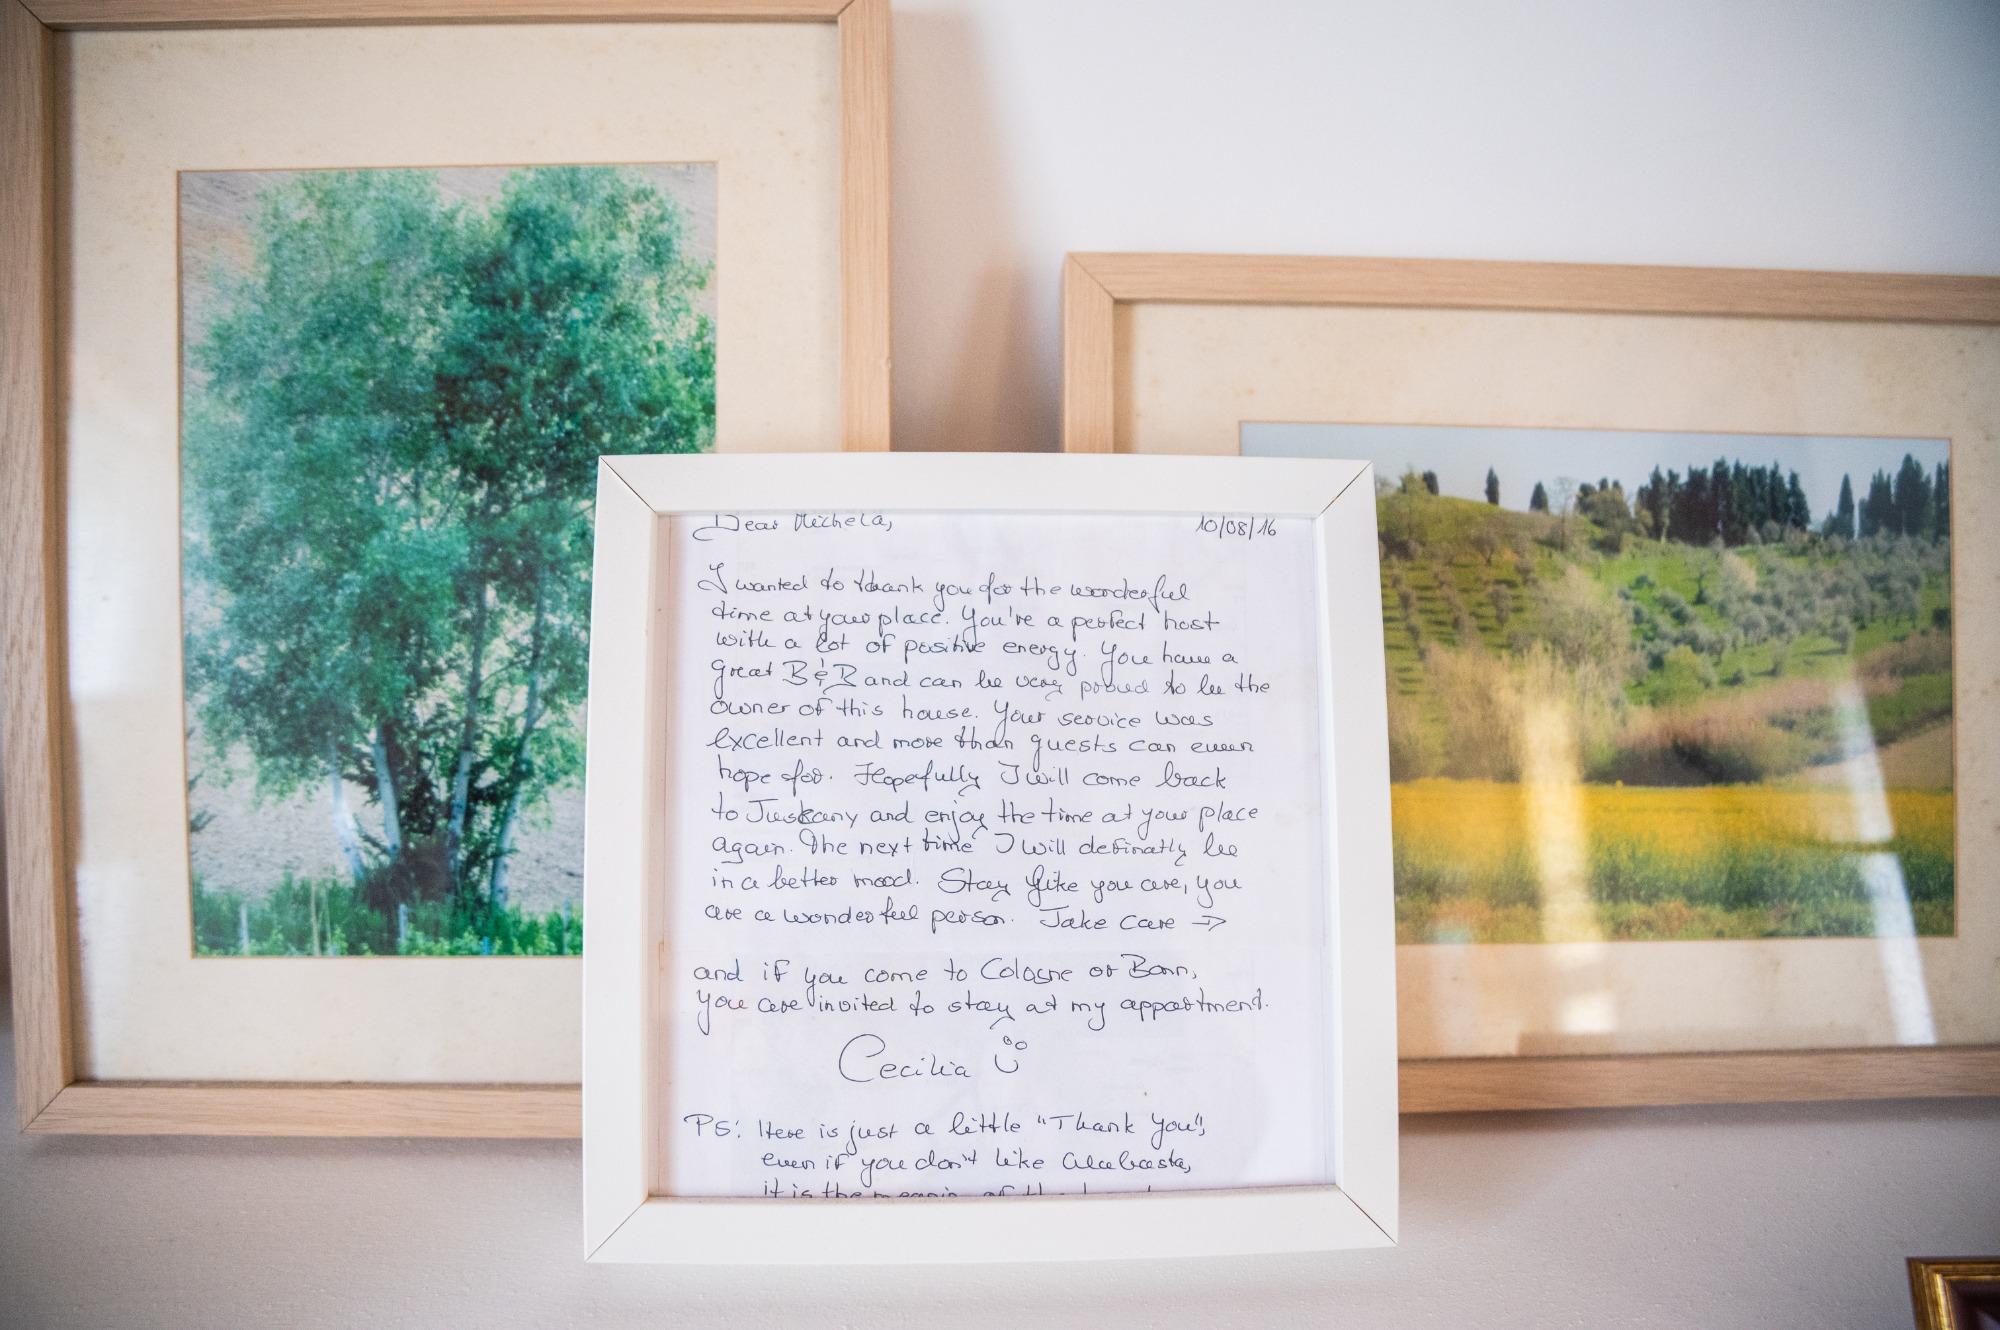 Dear Michela, 10/08/16
I wanted to thank you for the wonderful
time at your place. You're a perfect host
with a lot of positive energy. You have a
great B&B and can be very proud to be the
owner of this house. Your service was
excellent and more than guests can even
hope for. Hopefully I will come back
to Tuskany and enjoy the time at your place
again. The next time I will definatly be
in a better mood. Stay like you are, you
are a wonderful person. Take care →
and if you come to Cologne or Bonn,
you are invited to stay at my appartment.
Cecilia
PS: Here is just a little "Thank You",
even if you don't like alabasta,
it is the